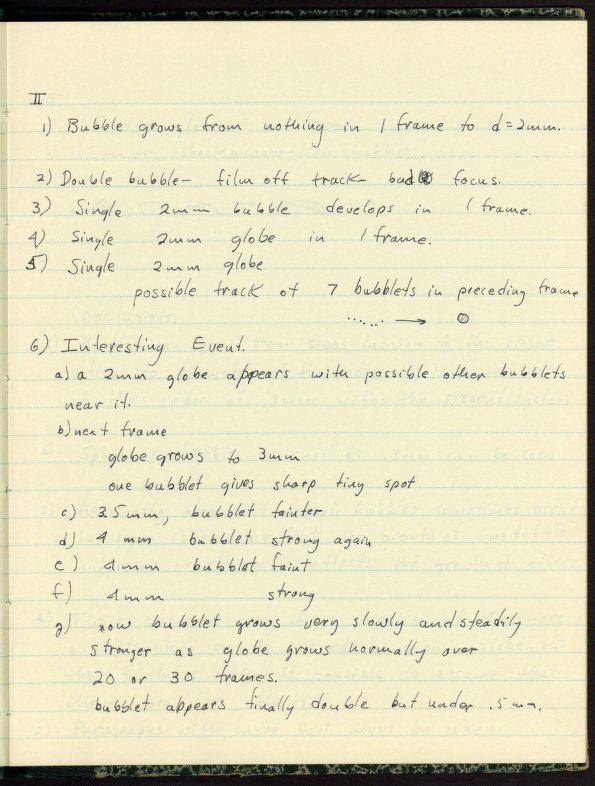 II
1) Bubble grows from nothing in 1 frame to d=2mm.
2) Double bubble - film off track - bad focus.
3) Single 2mm bubble develops in 1 frame.
4) Single 2mm globe in 1 frame.
5) Single 2mm globe
possible track of 7 bubblets in preceding frame
6) Interesting Event.
a) a 2mm globe appears with possible other bubblets
near it.
b) next frame
globe grows to 3mm
one bubblet gives sharp tiny spot
c) 3.5mm, bubblet fainter
d) 4 mm bubblet strong again
e) 4mm bubblet faint
f) 4mm strong
g) now bubblet grows very slowly and steadily
stronger as globe grows normally over
20 or 30 frames.
bubblet appears finally double but under .5mm.